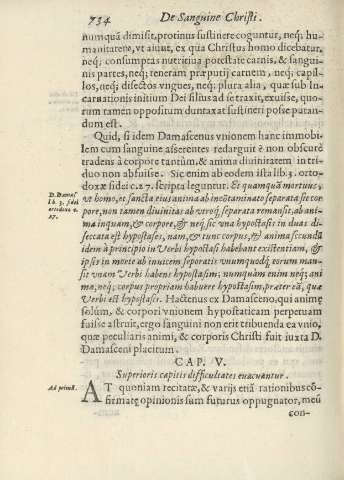 734
De Sanguine Christi.
numquā dimisit, protinus sustinere coguntur, neq; hu-
manitatem, vt aiunt, ex qua Christus homo dicebatur,
neq; consumptas nutritiua potestate carnis, & sangui-
nis partes, neq; teneram præputij carnem, neq; capil-
los, neq; disectos vngues, neq; plura alia, quæ sub In-
carnationis initium Dei filius ad se traxit, exuisse, quo-
rum tamen oppositum duntaxat sustineri posse putan-
dum est.
Quid, si idem Damascenus vnionem hanc immobi-
lem cum sanguine asserentes redarguit è non obscurè
tradens à corpore tantùm, & anima diuinitatem in tri-
duo non abfuisse. Sic enim ab eodem ista lib. 3. orto-
doxæ fidei c. 27. scripta leguntur. Et quamquā mortuus,
D. Damas
lib. 3. fidei
ortodoxæ c.
27.
vt homo, et sancta eius anima ab incōtaminato separata sit cor
pore, non tamen diuinitas ab vtroq; separata remansit, ab ani-
ma inquam, & corpore, & neq; sic vna hypostasis in duas di-
secata est hypostases, nam, & tunc corpus, & anima secundū
idem à principio in Verbi hypostasi habebant existentiam, &
ipsis in morte ab inuicem separatis vnumquodq; eorum man-
sit vnam Verbi habens hypostasim; numquàm enim neq; ani
ma, neq; corpus propriam habuere hypostasim, præter eā, quæ
Verbi est hypostasis. Hactenus ex Damasceno, qui animę
solùm, & corpori vnionem hypostaticam perpetuam
fuisse astruit, ergo sanguini non erit tribuenda ea vnio,
quæ peculiaris animi, & corporis Christi fuit iuxta D.
Damasceni placitum.
CAP. V.
Superioris capitis difficultates euacuantur.
Ad primū.
AT quoniam recitatæ, & varijs etiā rationibus cō-
firmatę opinionis sum futurus oppugnator, meū
con-